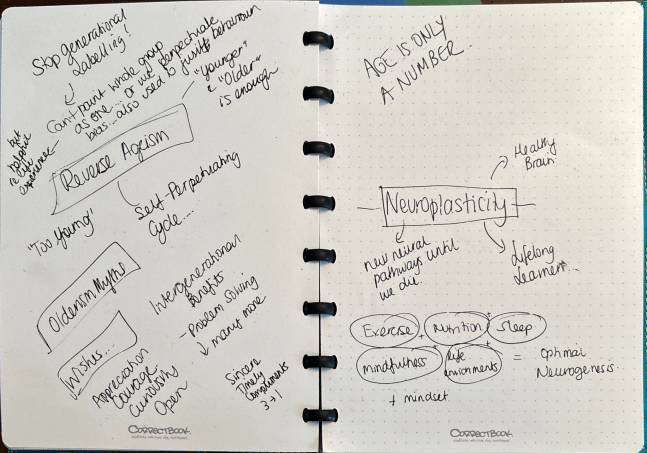 Stop generational
Labelling!
Can't paint whole group
as one... or we perpetuate
bias... also used to justify behaviour
"Younger"
& "Older"
is enough
life
experience
Reverse Ageism
"Too Young"
Self-Perpetuating
Cycle....
Olderism Myths
Intergenerational
Benefits
- Problem solving
↓ many more
Wishes...
Appreciation
Courage
Curiosity
Open
Sincere
Timely
Compliments
3→1
CORRECTBOOK
AGE IS ONLY
A NUMBER.
Healthy
Brain
Neuroplasticity
New neural
pathways until
we die.
Lifelong
Learner...
Exercise + Nutrition + Sleep
mindfulness + life = Optimal
Neurogenesis.
+ mindset
CORRECTBOOK